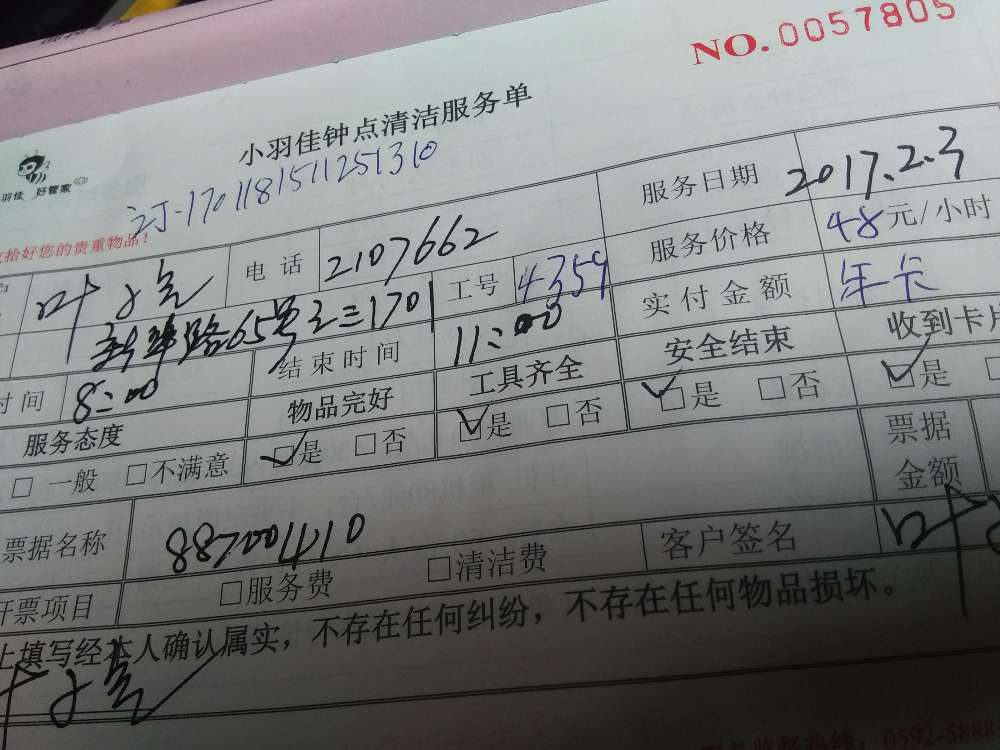 NO.0057805
小羽佳钟点清洁服务单
羽佳 好管家
订-1701181511251310
拾好您的贵重物品！
电话 2107662 服务日期 2017.2.3
叶 工号 4359 服务价格 48元/小时
新华路65号之三1701 实付金额 年卡
时间 8:00 结束时间 11:00 安全结束 收到卡片
服务态度 物品完好 工具齐全
□ 一般 □不满意 ☑是 □否 ☑是 □否 ☑是 □否 ☑是
票据名称 887001410 票据金额
开票项目 □服务费 □清洁费 客户签名 叶
上填写经本人确认属实，不存在任何纠纷，不存在任何物品损坏。
0592-5888